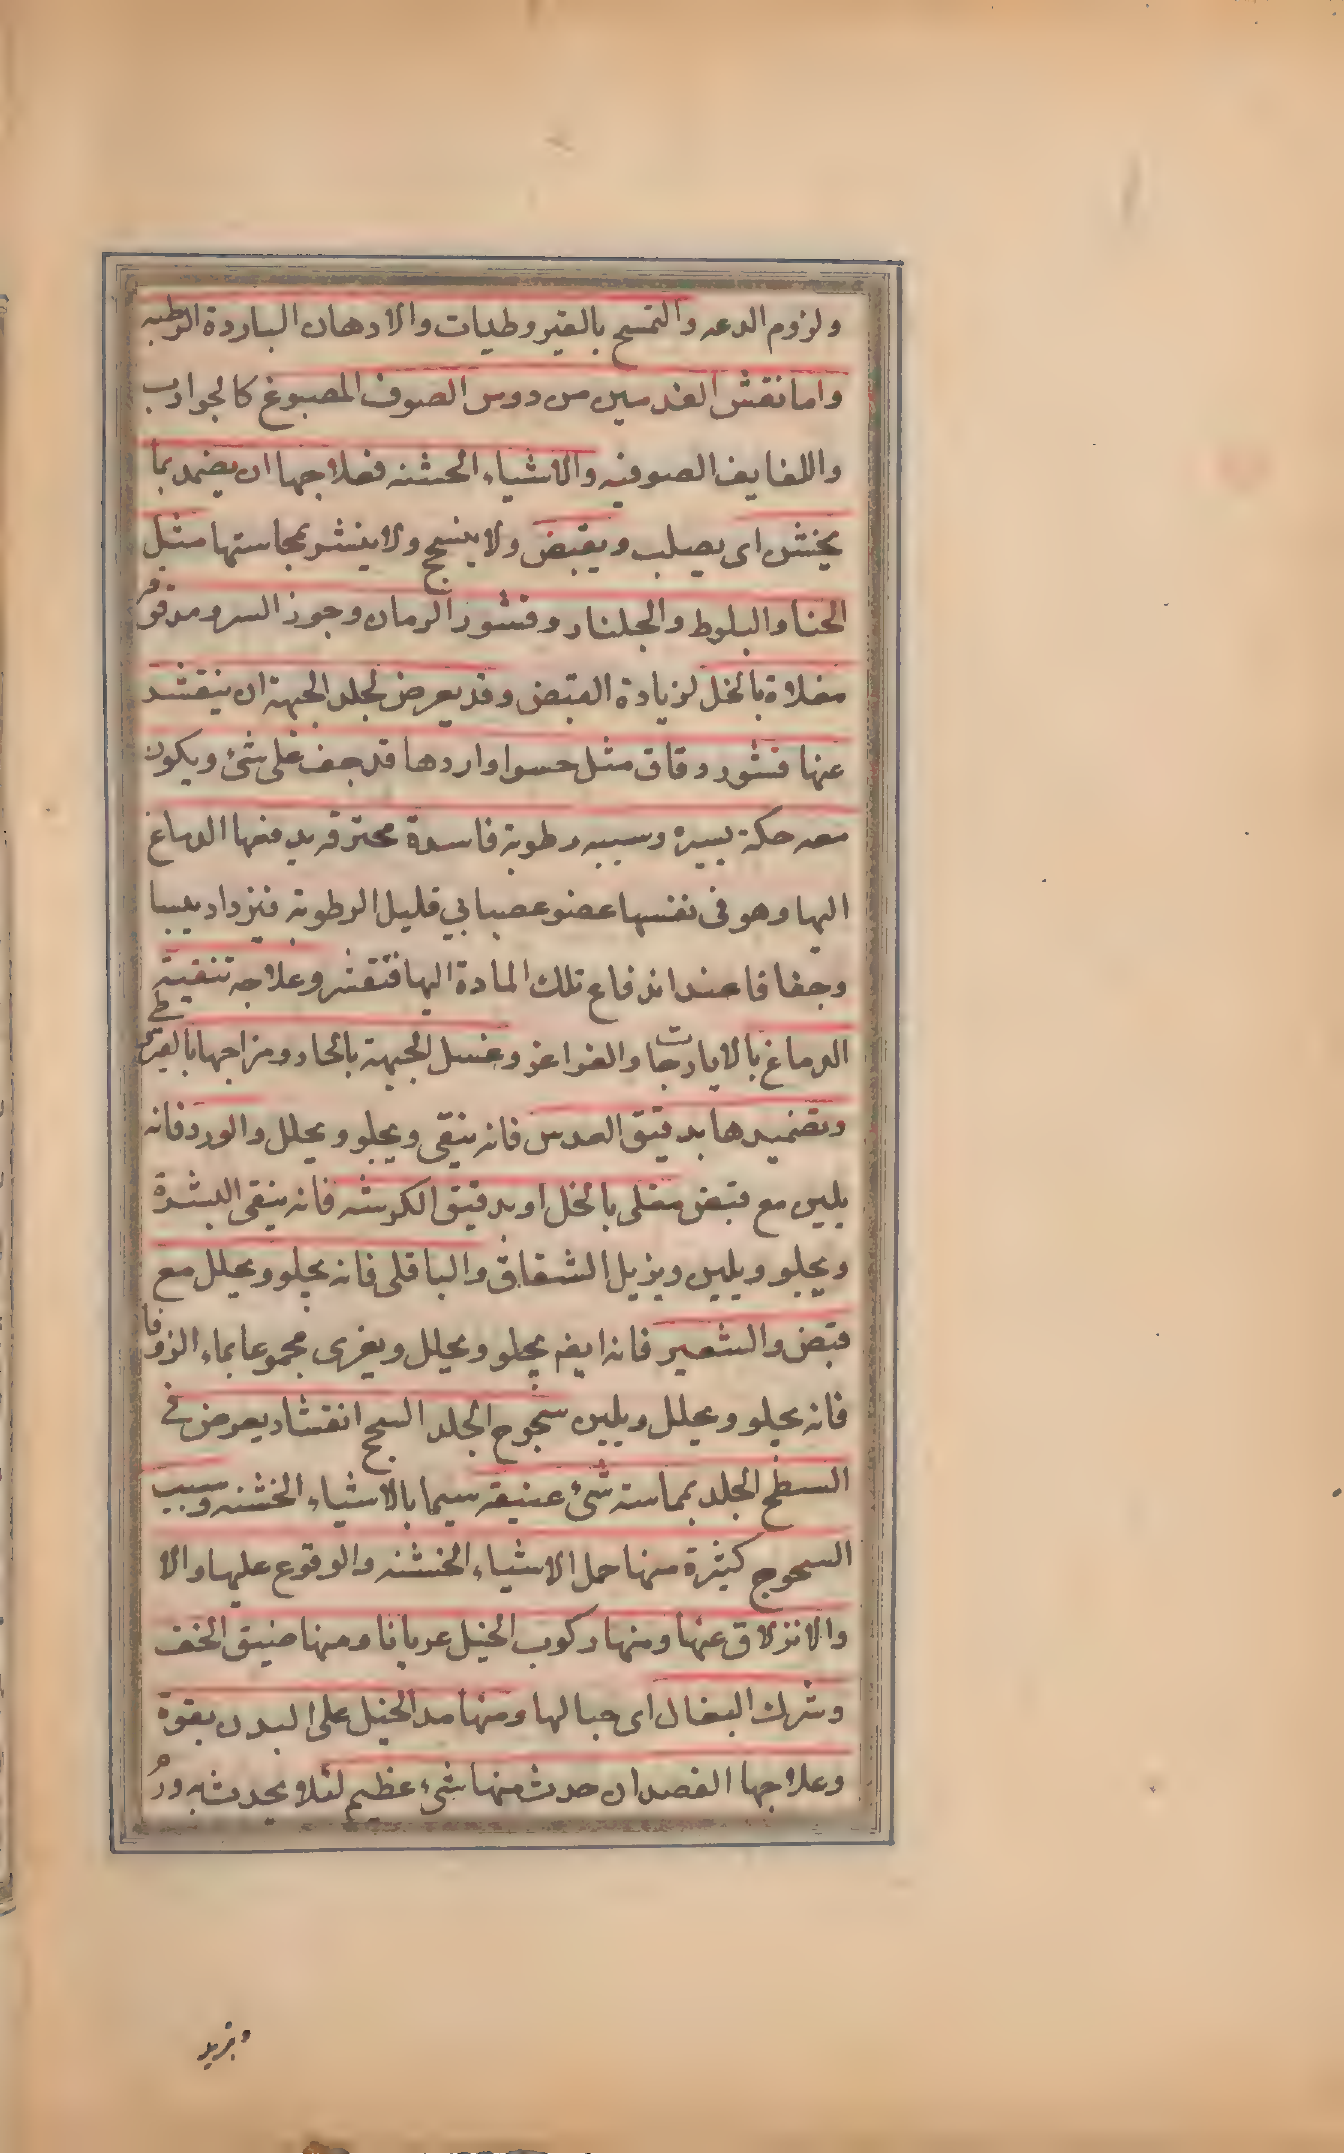 ولزوم الدعه والتمسح بالقيروطيات والادهان الباردة الرطبه
واما تقشر القدمين من دوس الصوف المصبوغ كالجوارب
واللفايف الصوفيه والاشياء الخشنه فعلاجها ان يضمد بما
يخشن اى يصلب ويقبض ولا ينسحج ولا ينشر بمجاستها مثل
الحنا والبلوط والجلنار وقشور الرمان وجوز السرو مدقوقه
مغلاة بالخل لزيادة القبض وقد يعرض لجلد الجبهة ان ينقشد
عنها قشور رقاق مثل حسوا واردها قد جف على شئ ويكون
معه حكة يسيرة وسببه رطوبة فاسدة محترقه يدفعها الدماغ
اليها وهو فى نفسها عضو عصبانى قليل الرطوبة فيزداد يبسا
وجفافا عند اندفاع تلك المادة اليها فتقشر وعلاجه تنقية
الدماغ بالايارجات والغراغر وغسل الجبهة بالحار ومزاجها بالقيروطى
وتضميدها بدقيق العدس فانه ينقى ويجلو ويحلل والورد فانه
يلين مع قبض مغلى بالخل او بدقيق الكرسنه فانه ينقى البشرة
ويجلو ويلين ويزيل الشقاق والباقلى فانه يجلو ويحلل مع
قبض والشعير فانه ايضا يجلو ويحلل ويغرى مجموعا بماء الزوفا
فانه يجلو ويحلل ويلين سحوج الجلد السحج انقشار يعرض فى
السطح الجلد بمماسة شئ عنيفة سيما بالاشياء الخشنه وسبب
السحوج كثيرة منها حمل الاشياء الخشنه والوقوع عليها والا
والانزلاق عنها ومنها ركوب الخيل عريانا ومنها ضيق الخف
وشرك البغال اى حبالها ومنها مد الخيل على البدن بقوة
وعلاجها الفصد ان حدث منها شئ عظيم لئلا يحدث به ورم